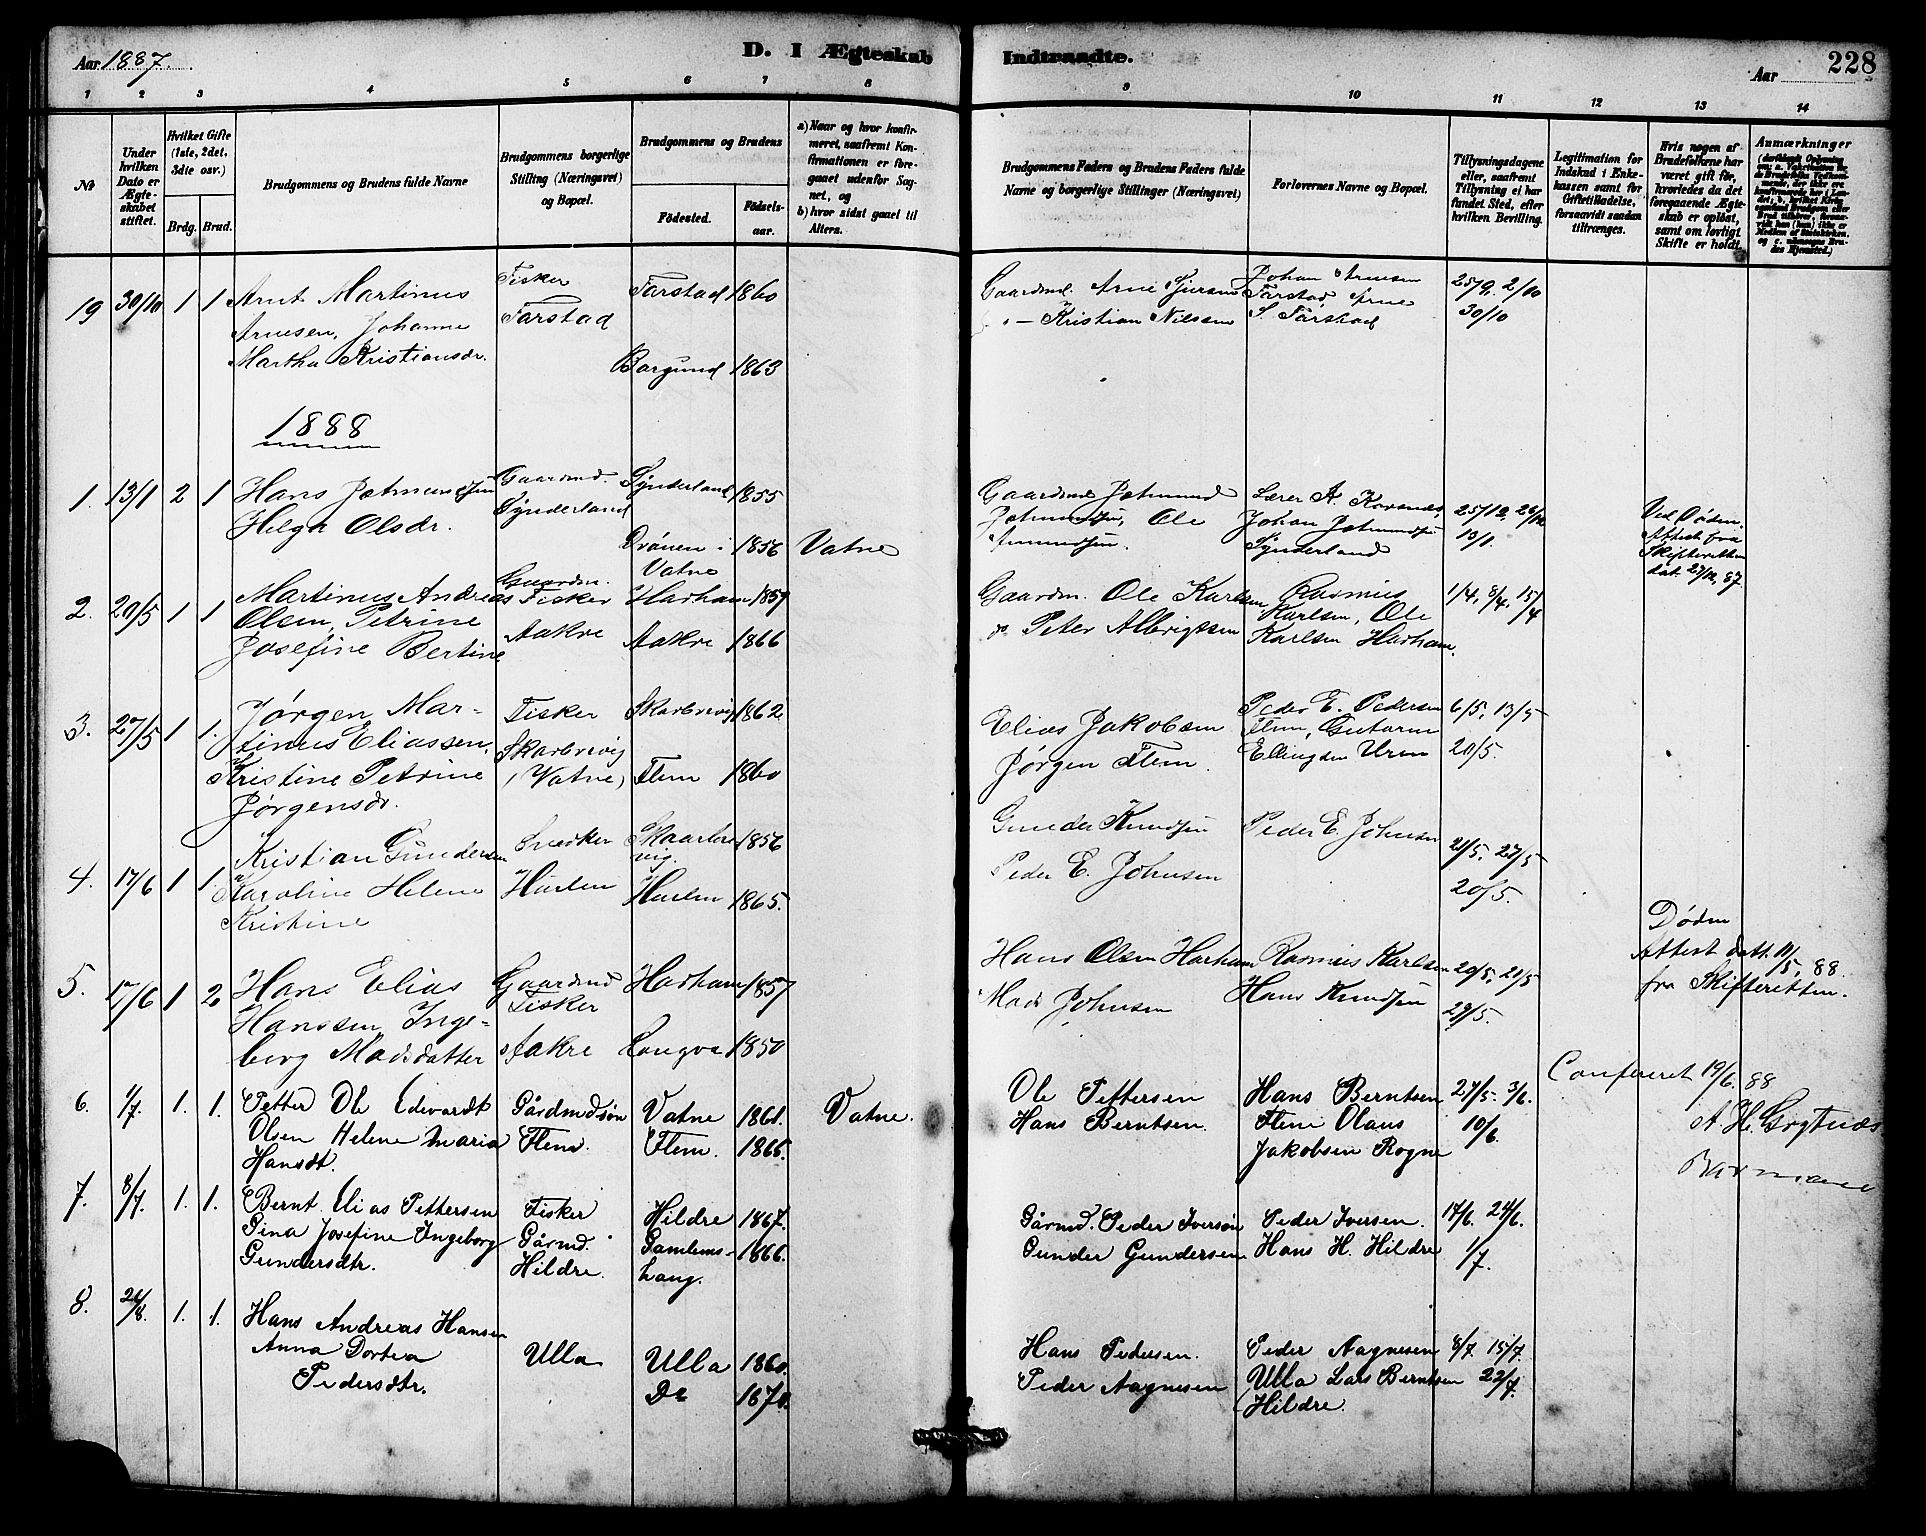 Aar 1887.
D. I Ægteskab
Indtraadte.
Aar
228
1 2 3 4 5 6 7 8
9 10 11 12 13 14
№
Under hvilken Dato er Ægteskabet stiftet.
Hvilket Gifte (1ste, 2det, 3die osv.)
Brdg. Brud.
Brudgommens og Brudens fulde Navne
Brudgommens borgerlige Stilling (Næringsvei) og Bopæl.
Brudgommens og Brudens
Fødested.
Fødselsaar.
a) Naar og hvor konfirmeret, saafremt Konfirmationen er foregaaet udenfor Sognet, og
b) hvor sidst gaaet til Alters.
Brudgommens Faders og Brudens Faders fulde Navne og borgerlige Stillinger (Næringsvei)
Forlovernes Navne og Bopæl.
Tillysningsdagene eller, saafremt Tillysning ei har fundet Sted, efter hvilken Bevilling.
Legitimation for Indskud i Enkekassen samt for Giftetilladelse, forsaavidt saadan tiltrænges.
Hvis nogen af Brudefolkene har været gift før, hvorledes da det foregaaende Ægteskab er opløst, samt om lovligt Skifte er holdt.
Anmærkninger
19 30/10 1 1 Arnt Martinus Fisker Farstad 1860 Gaardmd. Arne Sjursen Johan Arnesen 25/9. 2/10
Arnesen, Johanne Farstad - Kristian Nilsen Farstad Arne 30/10
Martha Kristiansdr. Borgund 1863 S. Farstad
1888
1. 13/1 2 1 Hans Jetmundsen Gaardmd. Synderland 1855 Gaardmd Jetmund Lærer A. 25/12, 26/12 Ved Døden.
Helga Olsdr. Synderland Jetmundsen, Ole Johan Jetmundsen 13/1. Attest fra
Drønen i 1856 Vatne Amundsen. Synderland Skifteretten
Vatne dat. 27/12, 87.
2. 20/5 1 1 Martinus Andreas Gaardm. Fisker Harham 1857 Gaardm. Ole Karlsen Rasmus 1/4, 8/4, 15/4
Olsen, Petrine Aakre Aakre 1866 do Peter Albrigtsen Karlsen, Ole
Josefine Bertine Karlsen Harham.
3. 27/5 1 1. Jørgen Mar- Fisker Skarbrevig 1862 Elias Jakobsen Peder E. Pedersen 6/5, 13/5
tinus Eliassen, Skarbrevig Flem, Gutorm 20/5.
Kristine Petrine (Vatne) Flem 1860 Jørgen Flem. Urm
Jørgensdr.
4. 17/6 1 1. Kristian Gundersen Snedker Skaarbre 1856 Gunder Knudsen Peder E. Johnsen 21/5. 27/5
Karoline Helene Huslen vig. Peder E. Johnsen 20/5.
Kristine Huslen 1865.
5. 17/6 1 2 Hans Elias Gaardmd Harham 1857 Hans Olsen Harham Rasmus Karlsen 20/5, 21/5 Døden
Hanssen, Inge- Fisker Mads Johnsen Hans Knudsen 29/5. Attest datt. 11/5, 88.
borg Madsdatter Aakre Longva 1850 fra Skifteretten.
6. 1/7. 1. 1. Petter Ole Edvardt Gårdmdsøn Vatne 1861. Vatne. Ole Pettersen Hans Berntsen 27/5. 3/6. Confereret 19/6. 88
Olsen Helene Maria Flem. Flem. 1865. Hans Berntsen. Flem Olaus 10/6.
Hansdt. Jakobsen Rogne
7. 8/7. 1. 1. Bernt Elias Pettersen Fisker Hildre 1867. Gårmd. Peder Iversøn Peder Iversen. 17/6. 24/6.
Gina Josefine Ingeborg Gårmd. Gamlems- 1866. Gunder Gundersen Hans H. Hildre 1/7.
Gundersdtr. Hildre. haug.
8. 26/8. 1. 1. Hans Andreas Hansen Ulla Ulla 1860. Hans Pedersen. Peder Aagnesen 8/7. 15/7.
Anna Dortea Do 1870. Peder Aagnesen Ulla Lars Berntsen 22/7.
Pedersdtr. Hildre.